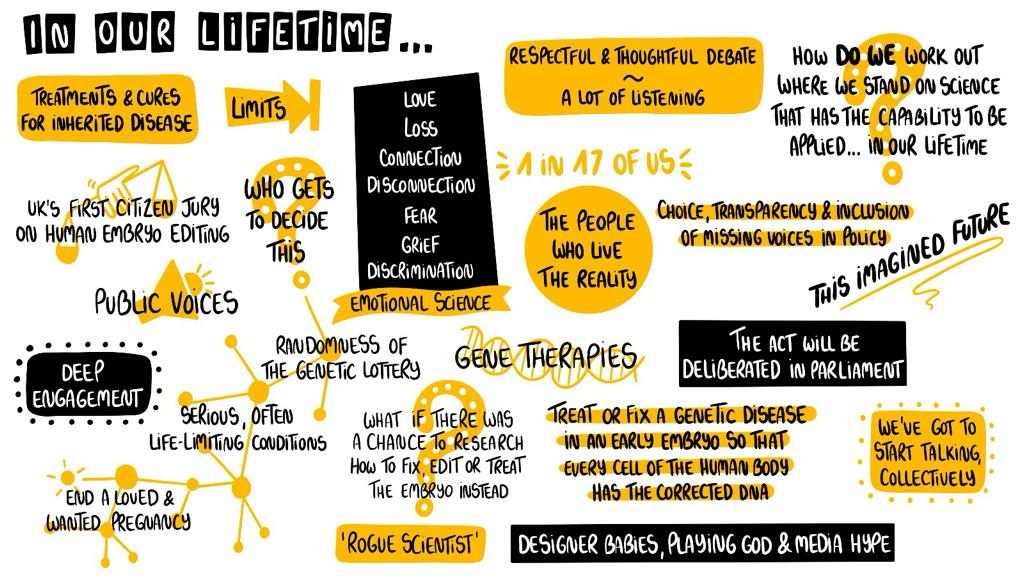 IN OUR LIFETIME...
TREATMENTS & CURES
FOR INHERITED DISEASE
LIMITS
LOVE
LOSS
CONNECTION
DISCONNECTION
FEAR
GRIEF
DISCRIMINATION
EMOTIONAL SCIENCE
RESPECTFUL & THOUGHTFUL DEBATE
~
A LOT OF LISTENING
HOW DO WE WORK OUT
WHERE WE STAND ON SCIENCE
THAT HAS THE CAPABILITY TO BE
APPLIED... IN OUR LIFETIME
UK'S FIRST CITIZEN JURY
ON HUMAN EMBRYO EDITING
WHO GETS
TO DECIDE
THIS
1 IN 17 OF US
THE PEOPLE
WHO LIVE
THE REALITY
CHOICE, TRANSPARENCY & INCLUSION
OF MISSING VOICES IN POLICY
THIS IMAGINED FUTURE
PUBLIC VOICES
DEEP
ENGAGEMENT
RANDOMNESS OF
THE GENETIC LOTTERY
GENE THERAPIES
THE ACT WILL BE
DELIBERATED IN PARLIAMENT
SERIOUS, OFTEN
LIFE-LIMITING CONDITIONS
WHAT IF THERE WAS
A CHANCE TO RESEARCH
HOW TO FIX, EDIT OR TREAT
THE EMBRYO INSTEAD
TREAT OR FIX A GENETIC DISEASE
IN AN EARLY EMBRYO SO THAT
EVERY CELL OF THE HUMAN BODY
HAS THE CORRECTED DNA
WE'VE GOT TO
START TALKING,
COLLECTIVELY
END A LOVED &
WANTED PREGNANCY
'ROGUE SCIENTIST'
DESIGNER BABIES, PLAYING GOD & MEDIA HYPE